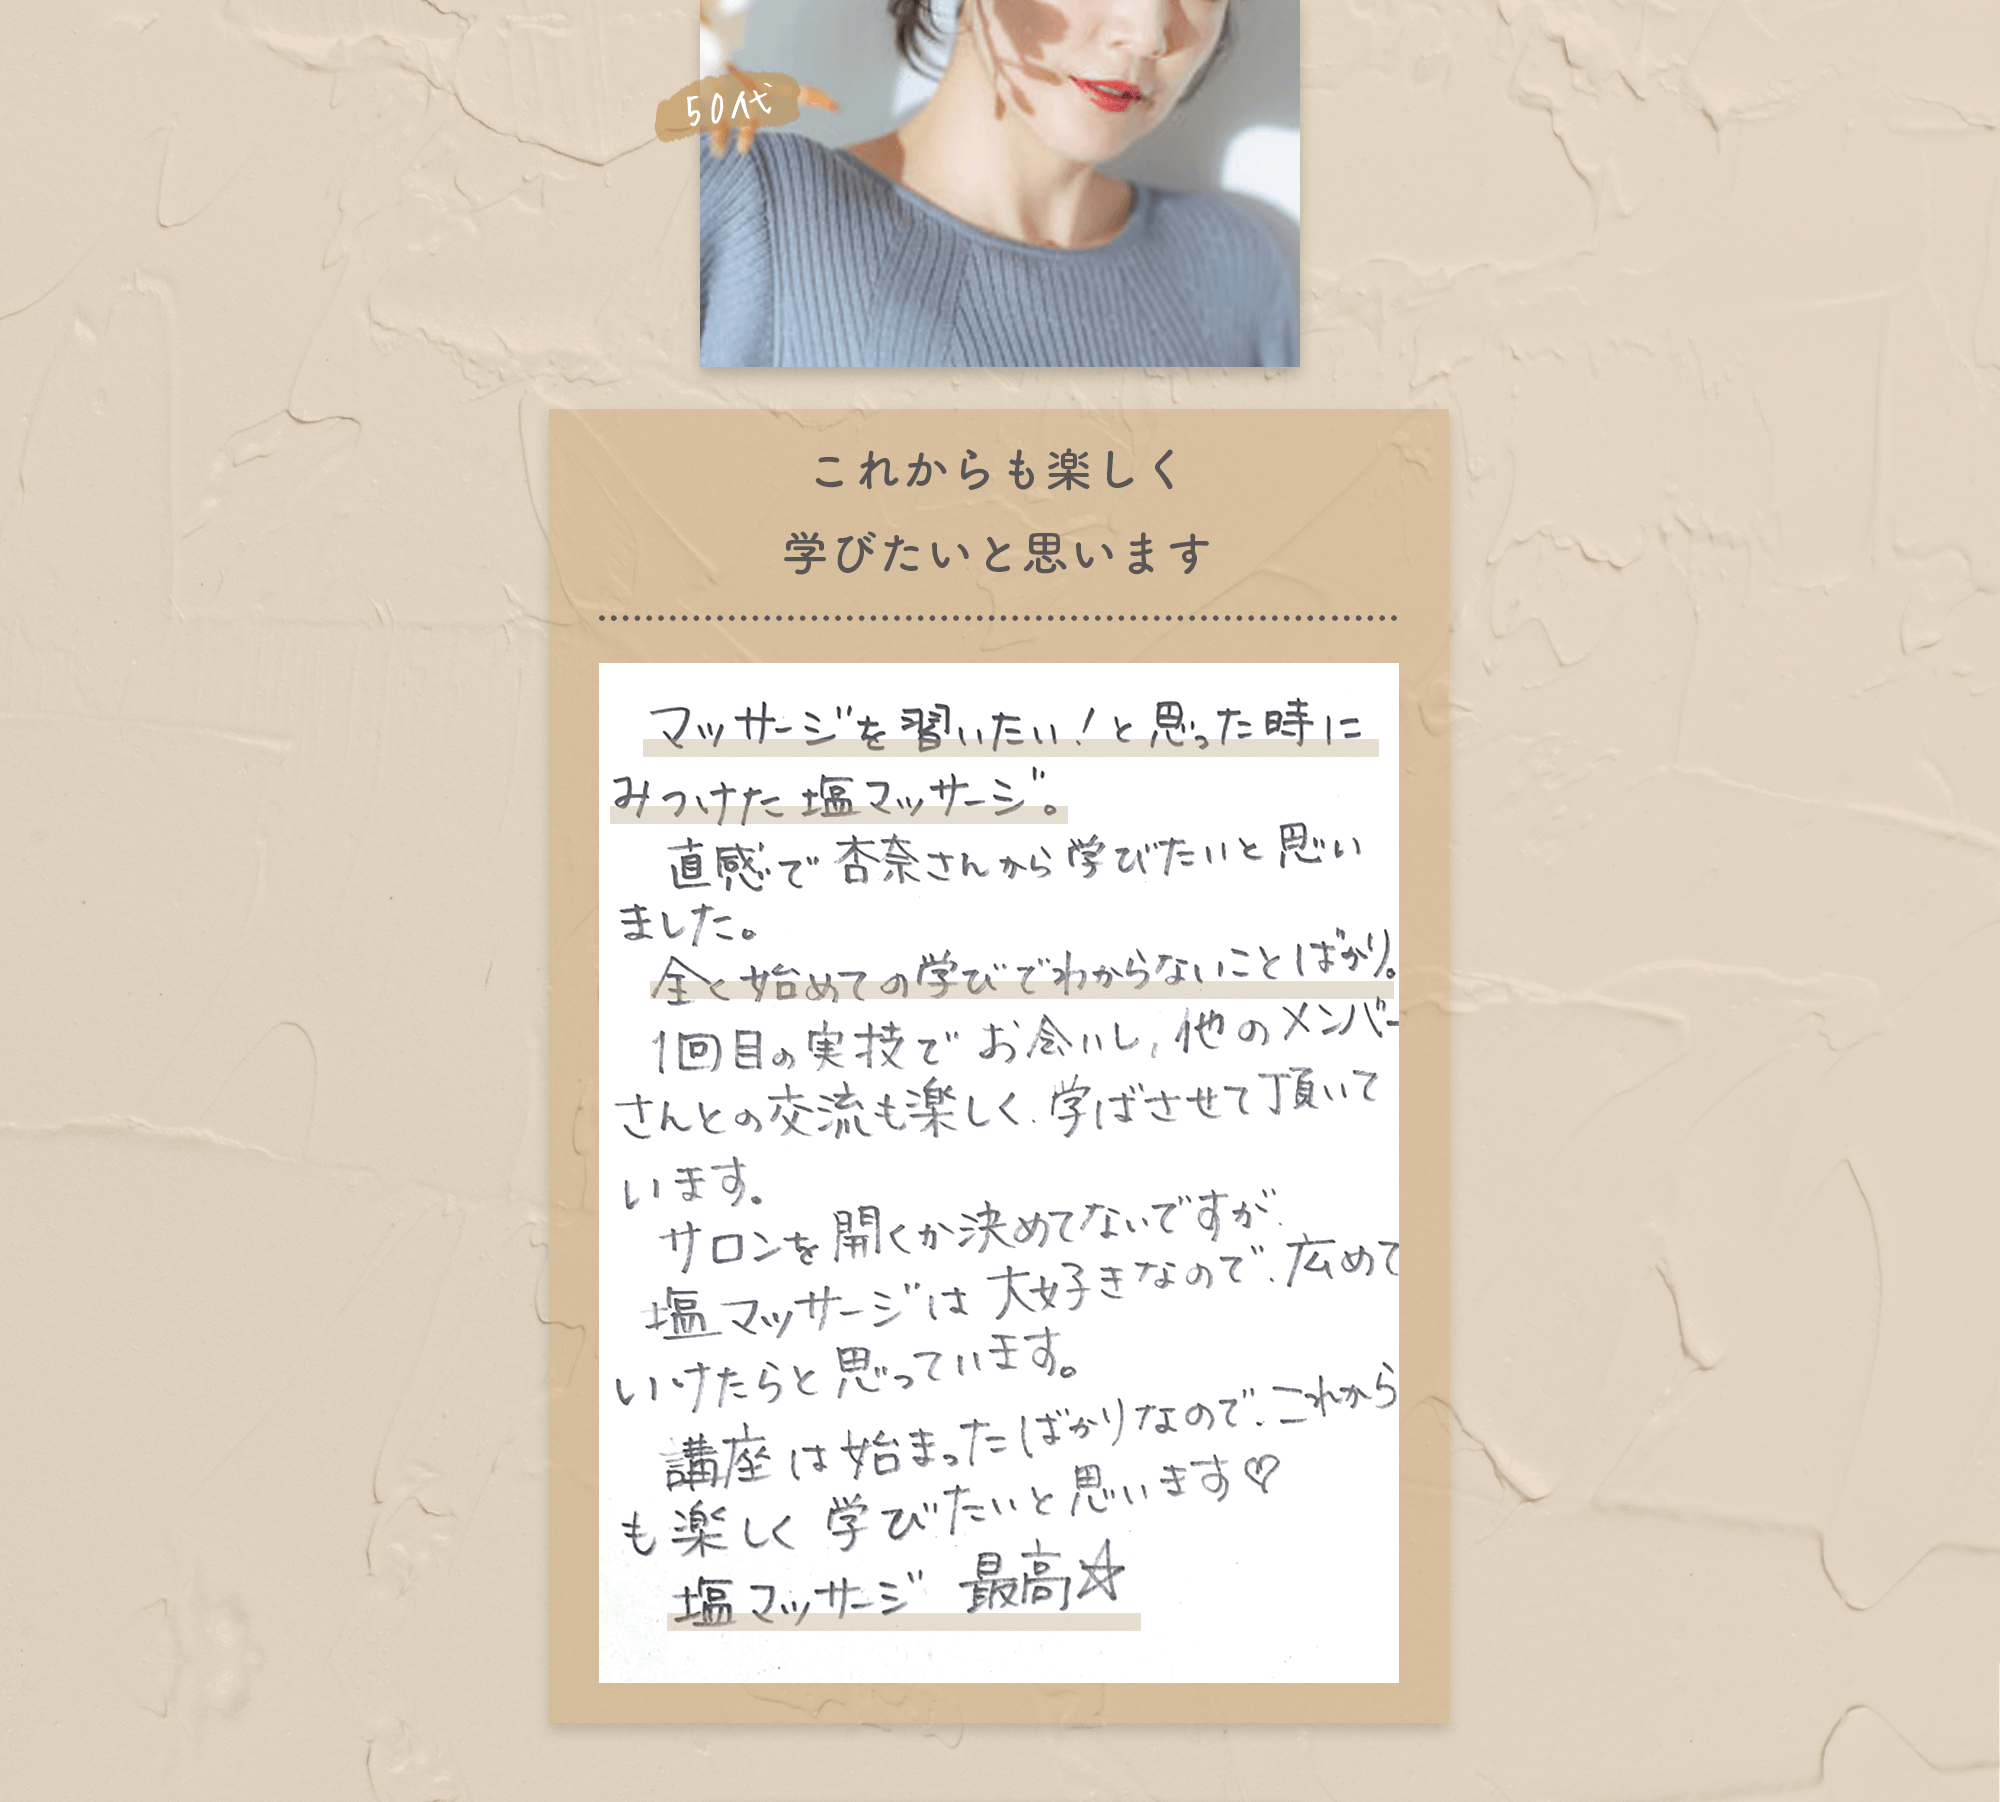 50代
これからも楽しく
学びたいと思います
マッサージを習いたい！と思った時に
みつけた塩マッサージ。
直感で杏奈さんから学びたいと思い
ました。
全く始めての学びでわからないことばかり。
1回目の実技でお会いし、他のメンバー
さんとの交流も楽しく、学ばさせて頂いて
います。
サロンを開くか決めてないですが、
塩マッサージは大好きなので、広めて
いけたらと思っています。
講座は始まったばかりなので、これから
も楽しく学びたいと思います♡
塩マッサージ 最高☆